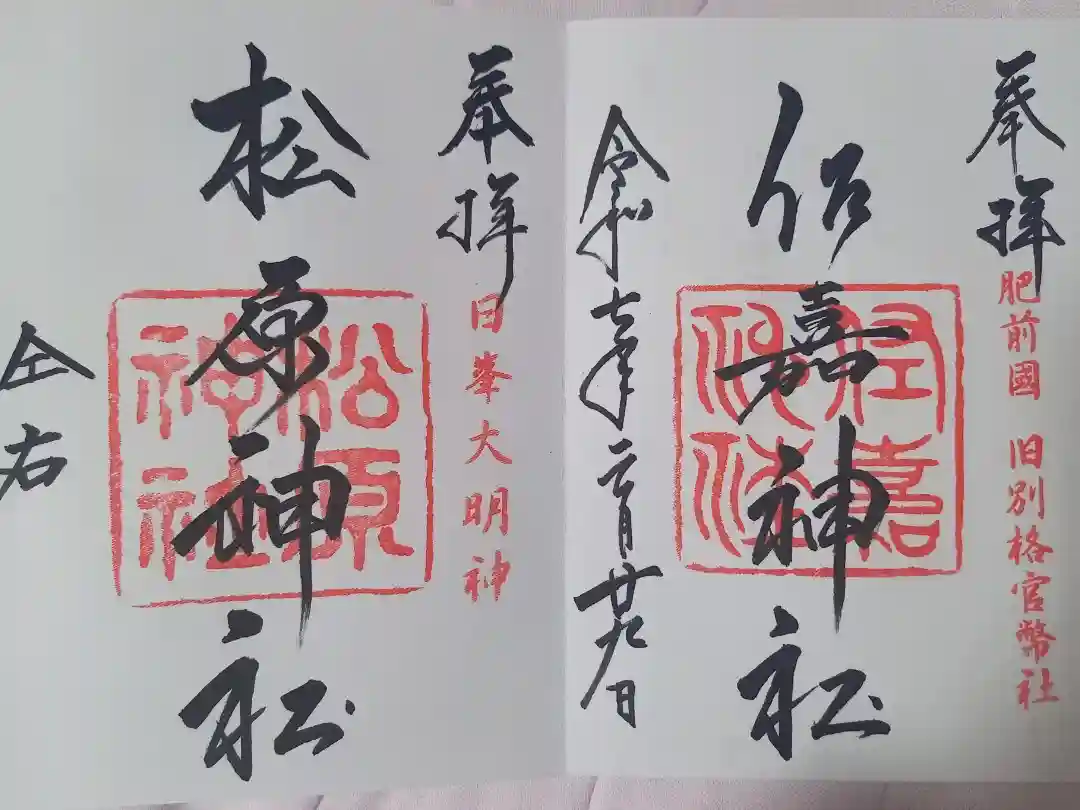 奉拝
肥前國 旧別格官幣社
佐嘉神社
佐嘉
神社
令和七年三月廿九日
奉拝
日峯大明神
松原神社
松原
神社
仝右